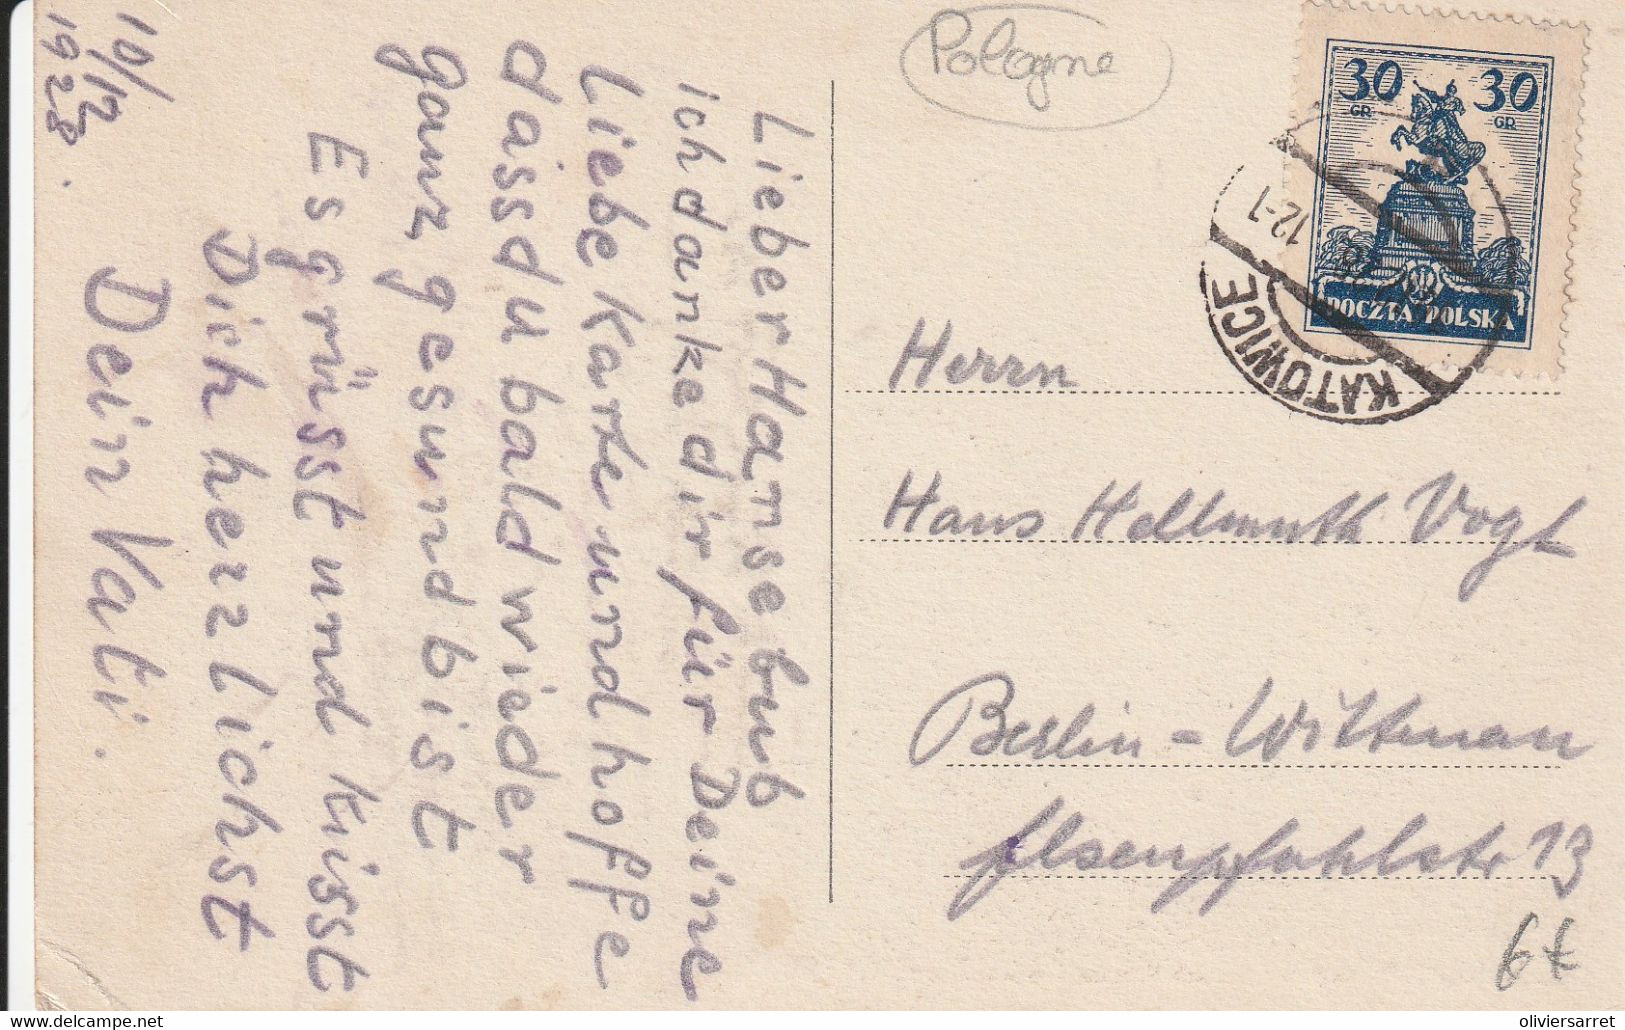 Pologne
30 30
GR GR
POCZTA POLSKA
KATOWICE
12-1
10/12
1928.
Lieber Hansebub
ich danke dir für Deine
Liebe Karte und hoffe
dass du bald wieder
ganz gesund bist
Es grüsst und küsst
Dich herzlichst
Dein Vati.
Herrn
Hans Hellmuth Vogt
Berlin - Wittmau
13
6€
www.delcampe.net
oliviersarret